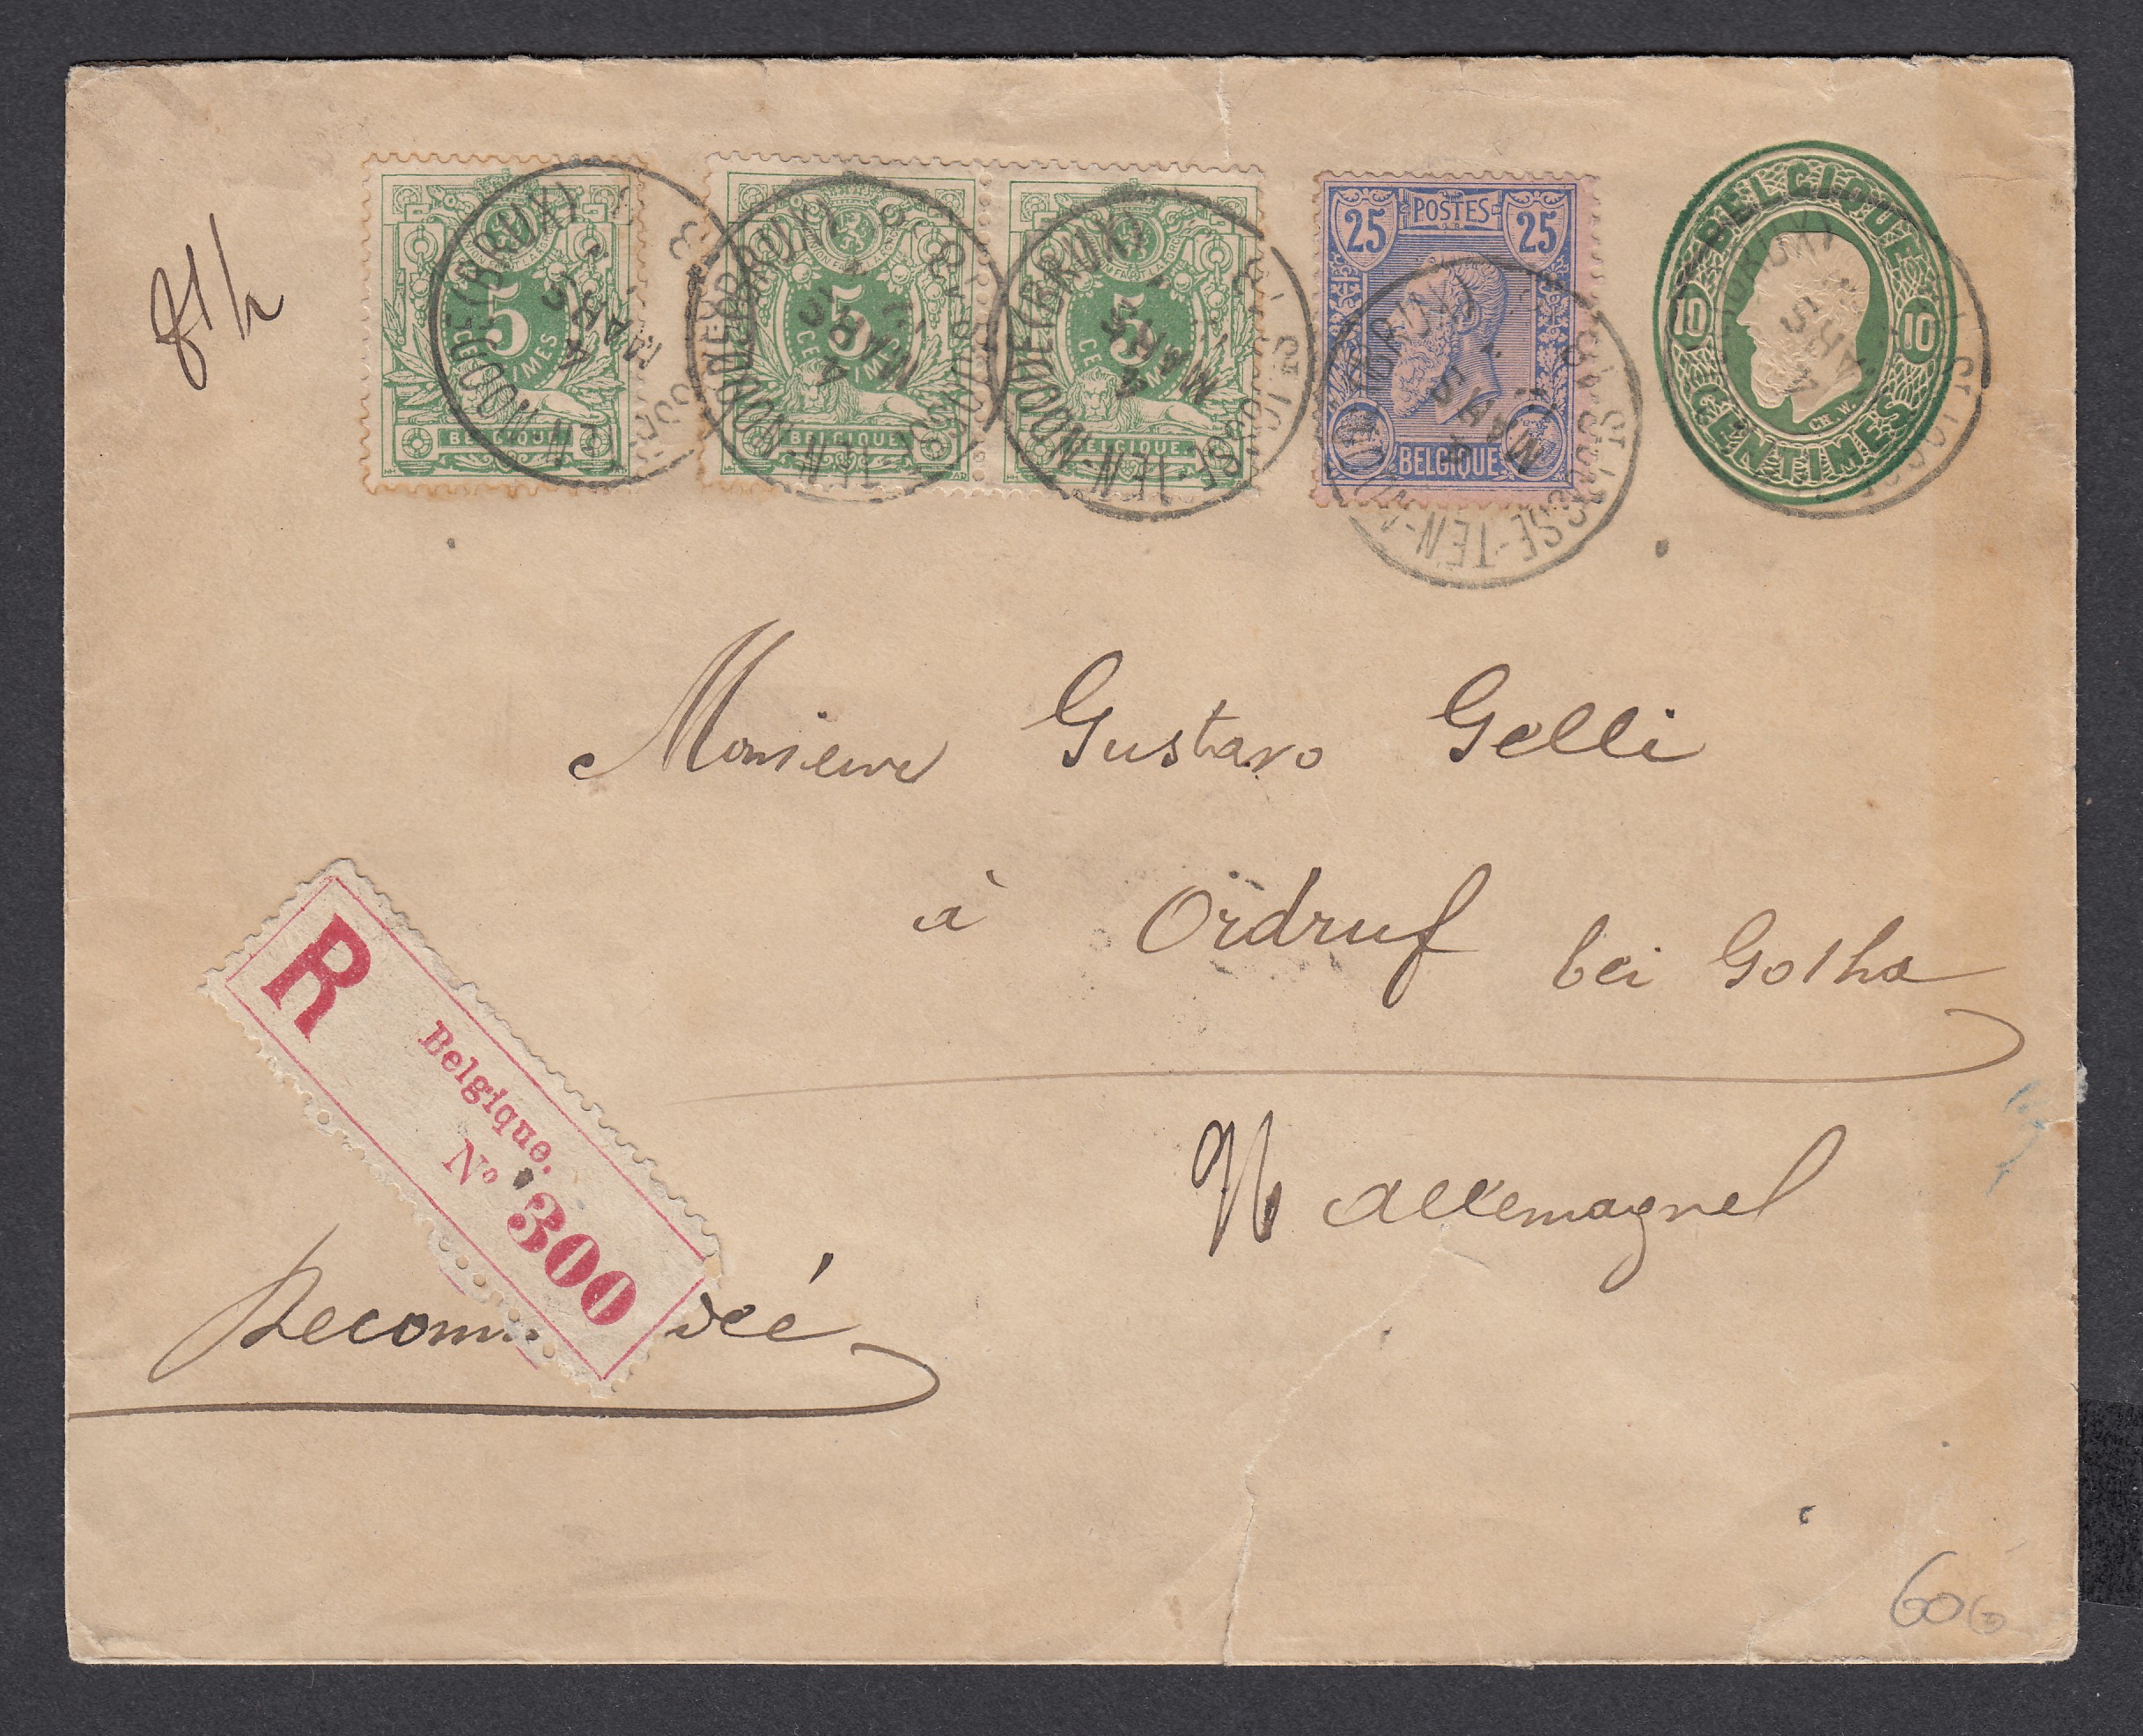 5
CENTIMES
BELGIQUE
5
CENTIMES
BELGIQUE
5
CENTIMES
BELGIQUE
25 POSTES 25
BELGIQUE
BELGIQUE
10 10
CENTIMES
CH. W.
ST JOSSE-TEN-NOODE (BRUX)
4
MARS
Monsieur Gustavo Gelli
à Ordruf bei Gotha
Allemagne
R
Belgique.
No 300
Recomm dé
60